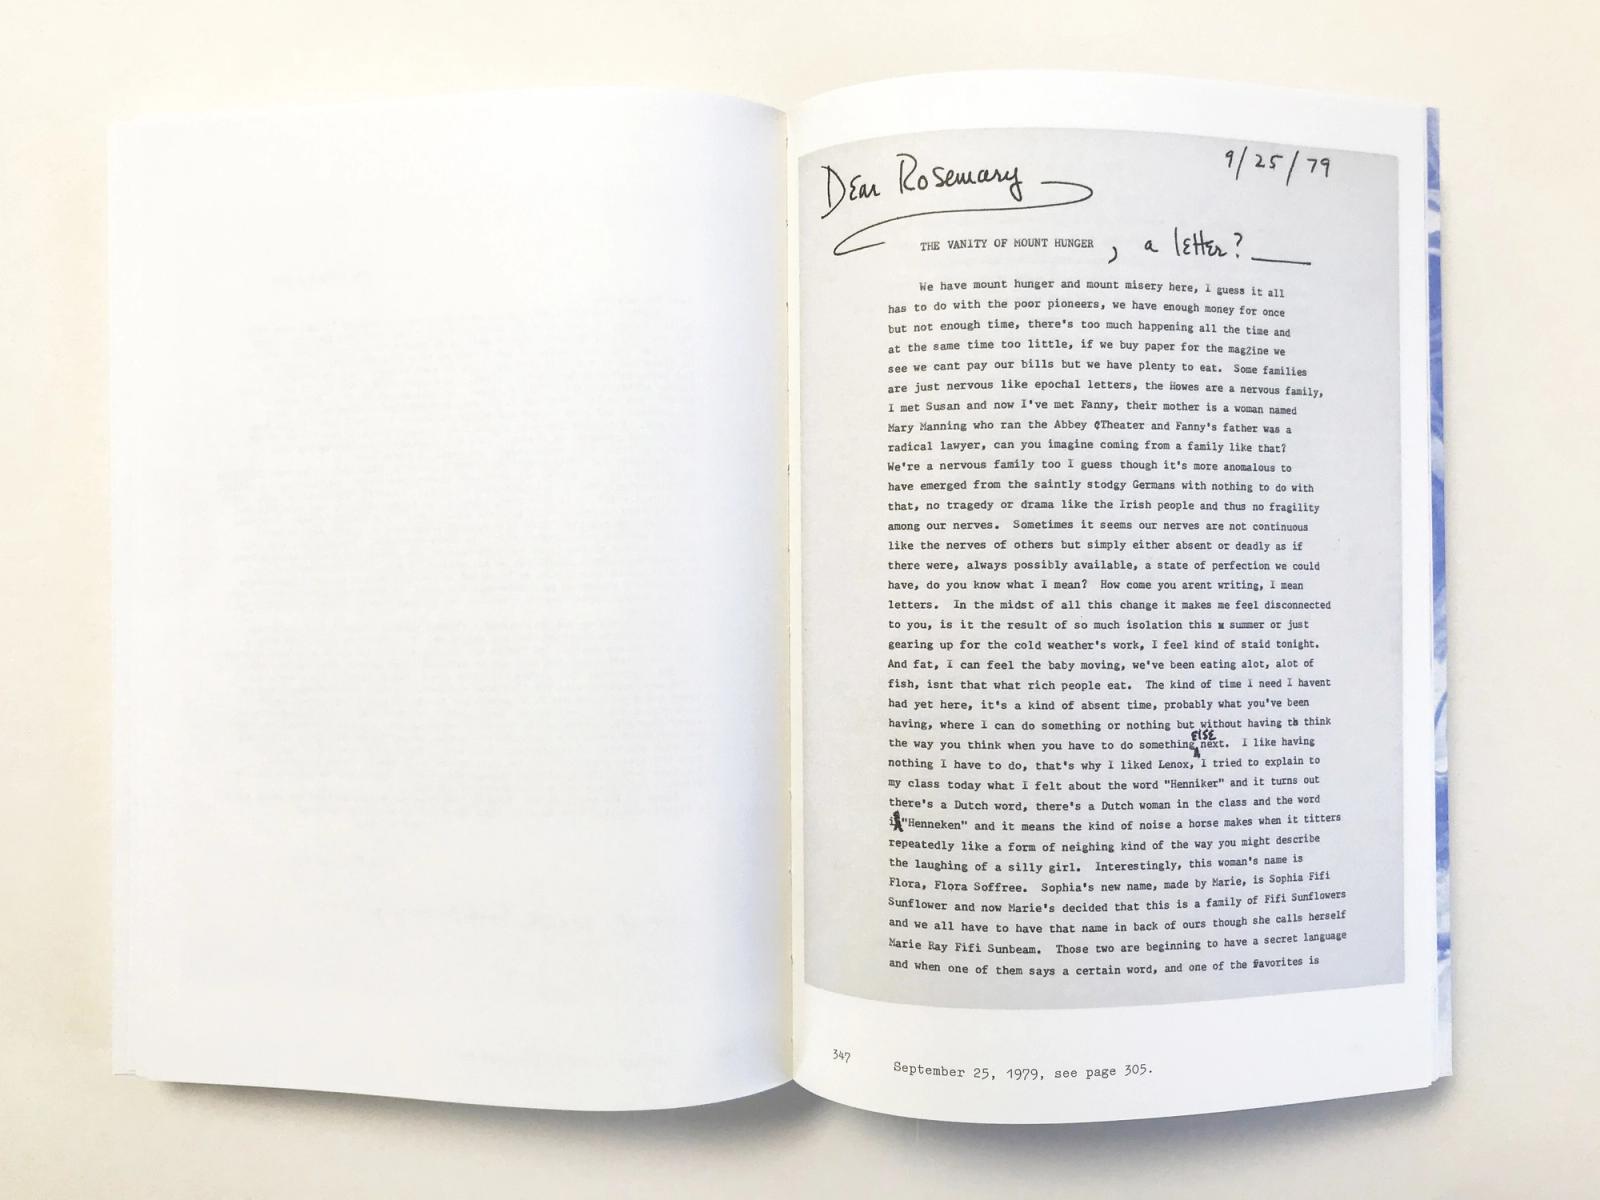 Dear Rosemary
9/25/79
THE VANITY OF MOUNT HUNGER, a letter?
We have mount hunger and mount misery here, I guess it all
has to do with the poor pioneers, we have enough money for once
but not enough time, there's too much happening all the time and
at the same time too little, if we buy paper for the mag2ine we
see we cant pay our bills but we have plenty to eat. Some families
are just nervous like epochal letters, the Howes are a nervous family,
I met Susan and now I've met Fanny, their mother is a woman named
Mary Manning who ran the Abbey ¢Theater and Fanny's father was a
radical lawyer, can you imagine coming from a family like that?
We're a nervous family too I guess though it's more anomalous to
have emerged from the saintly stodgy Germans with nothing to do with
that, no tragedy or drama like the Irish people and thus no fragility
among our nerves. Sometimes it seems our nerves are not continuous
like the nerves of others but simply either absent or deadly as if
there were, always possibly available, a state of perfection we could
have, do you know what I mean? How come you arent writing, I mean
letters. In the midst of all this change it makes me feel disconnected
to you, is it the result of so much isolation this summer or just
gearing up for the cold weather's work, I feel kind of staid tonight.
And fat, I can feel the baby moving, we've been eating alot, alot of
fish, isnt that what rich people eat. The kind of time I need I havent
had yet here, it's a kind of absent time, probably what you've been
having, where I can do something or nothing but without having to think
the way you think when you have to do something ELSE next. I like having
nothing I have to do, that's why I liked Lenox, I tried to explain to
my class today what I felt about the word "Henniker" and it turns out
there's a Dutch word, there's a Dutch woman in the class and the word
is "Henneken" and it means the kind of noise a horse makes when it titters
repeatedly like a form of neighing kind of the way you might describe
the laughing of a silly girl. Interestingly, this woman's name is
Flora, Flora Soffree. Sophia's new name, made by Marie, is Sophia Fifi
Sunflower and now Marie's decided that this is a family of Fifi Sunflowers
and we all have to have that name in back of ours though she calls herself
Marie Ray Fifi Sunbeam. Those two are beginning to have a secret language
and when one of them says a certain word, and one of the favorites is
347
September 25, 1979, see page 305.